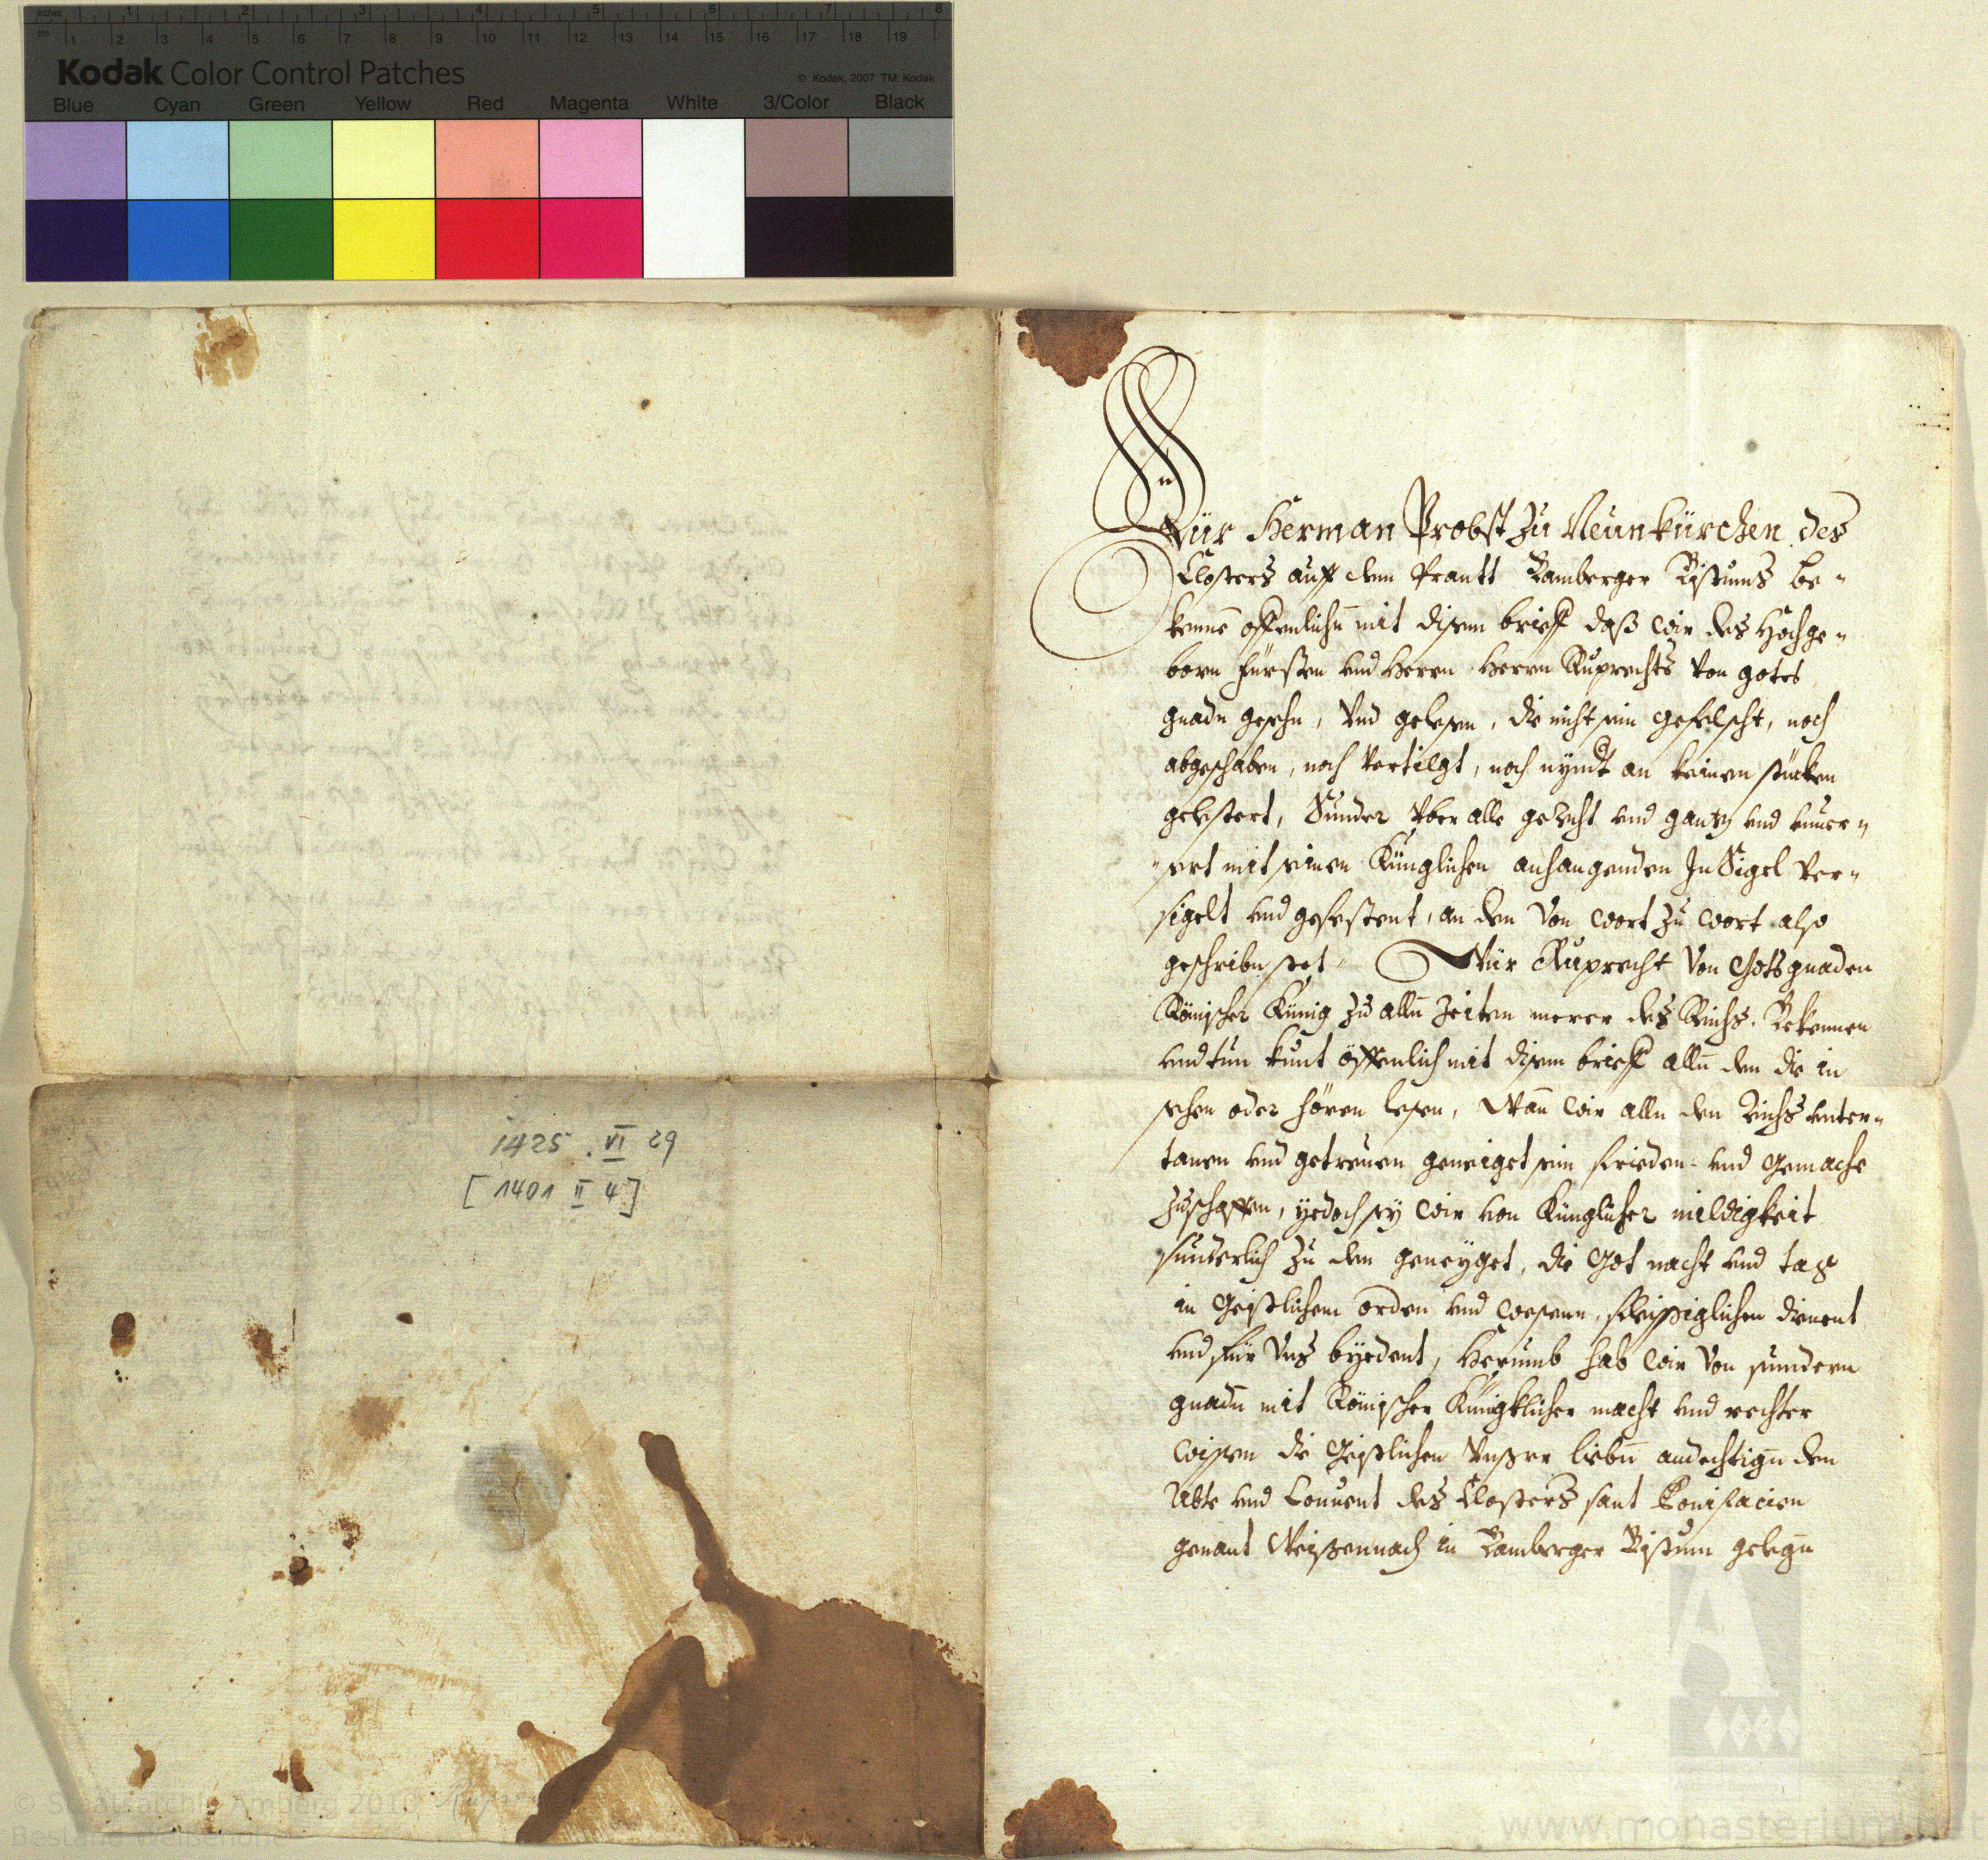 inches 1 2 3 4 5 6 7 8
cm 1 2 3 4 5 6 7 8 9 10 11 12 13 14 15 16 17 18 19
Kodak Color Control Patches © Kodak, 2007 TM: Kodak
Blue Cyan Green Yellow Red Magenta White 3/Color Black
1425 . VI 29
[ 1401 II 4 ]
Wür Herman Probst zu Neunkürchen des
Closters auff dem Prantt Bamberger Bistumbs be-
kenne offenlichn mit disem brieff daß wir des Hochge-
born fürsten und Herrn Herrn Ruprechts von gotes
gnadn gesehn, und gelesen, die nicht sein gefelscht, noch
abgeschaben, noch vertilgt, noch an keinen stucken
gelestert, Sunder vber alle gerecht und gantz und
mit seinem Künglichen anhangenden InSigel ver-
sigelt und gefestent, an dem von wort zu wort also
geschribn stet. Wür Ruprecht von Gots gnaden
Römischer Künig zu alln Zeiten merer des Reichs. Bekennen
und tun kunt offenlich mit disem brieff alln den die in
sehen oder hören lesen, Wan wir alln den Reichs unter-
tanen und getreuen geneiget sein frieden und Gemache
zuschaffen, yedoch sey wir von Künglicher mildigkeit
sunderlich zu den geneyget, die Got nacht und tage
in Geistlichem orden und wesenn, fleissiglichen dienent
und für Vns byedent, Herumb hab wir von sundern
gnadn mit Römischer Künigklicher macht und rechter
wissen die Geistlichen Unßere liebn andechtign den
Abte und Convent des Closters sant Bonifacien
genant Weissennach in Bamberger Bistum gelegn
© Staatsarchiv Amberg 2010
www.monasterium.net